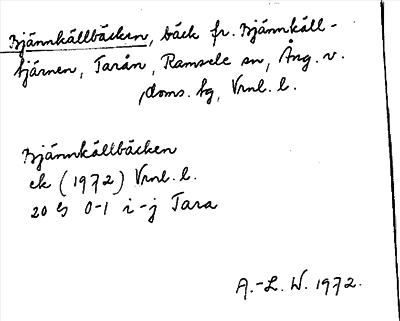 Bjännkällbäcken, bäck fr. Bjännkäll-
tjärnen, Tarån, Ramsele sn, Ång. v.
doms. hg, Vrnl. l.
Bjännkällbäcken
ek (1972) Vrnl. l.
20 G 0-1 i-j Tara
A.-L. W. 1972.